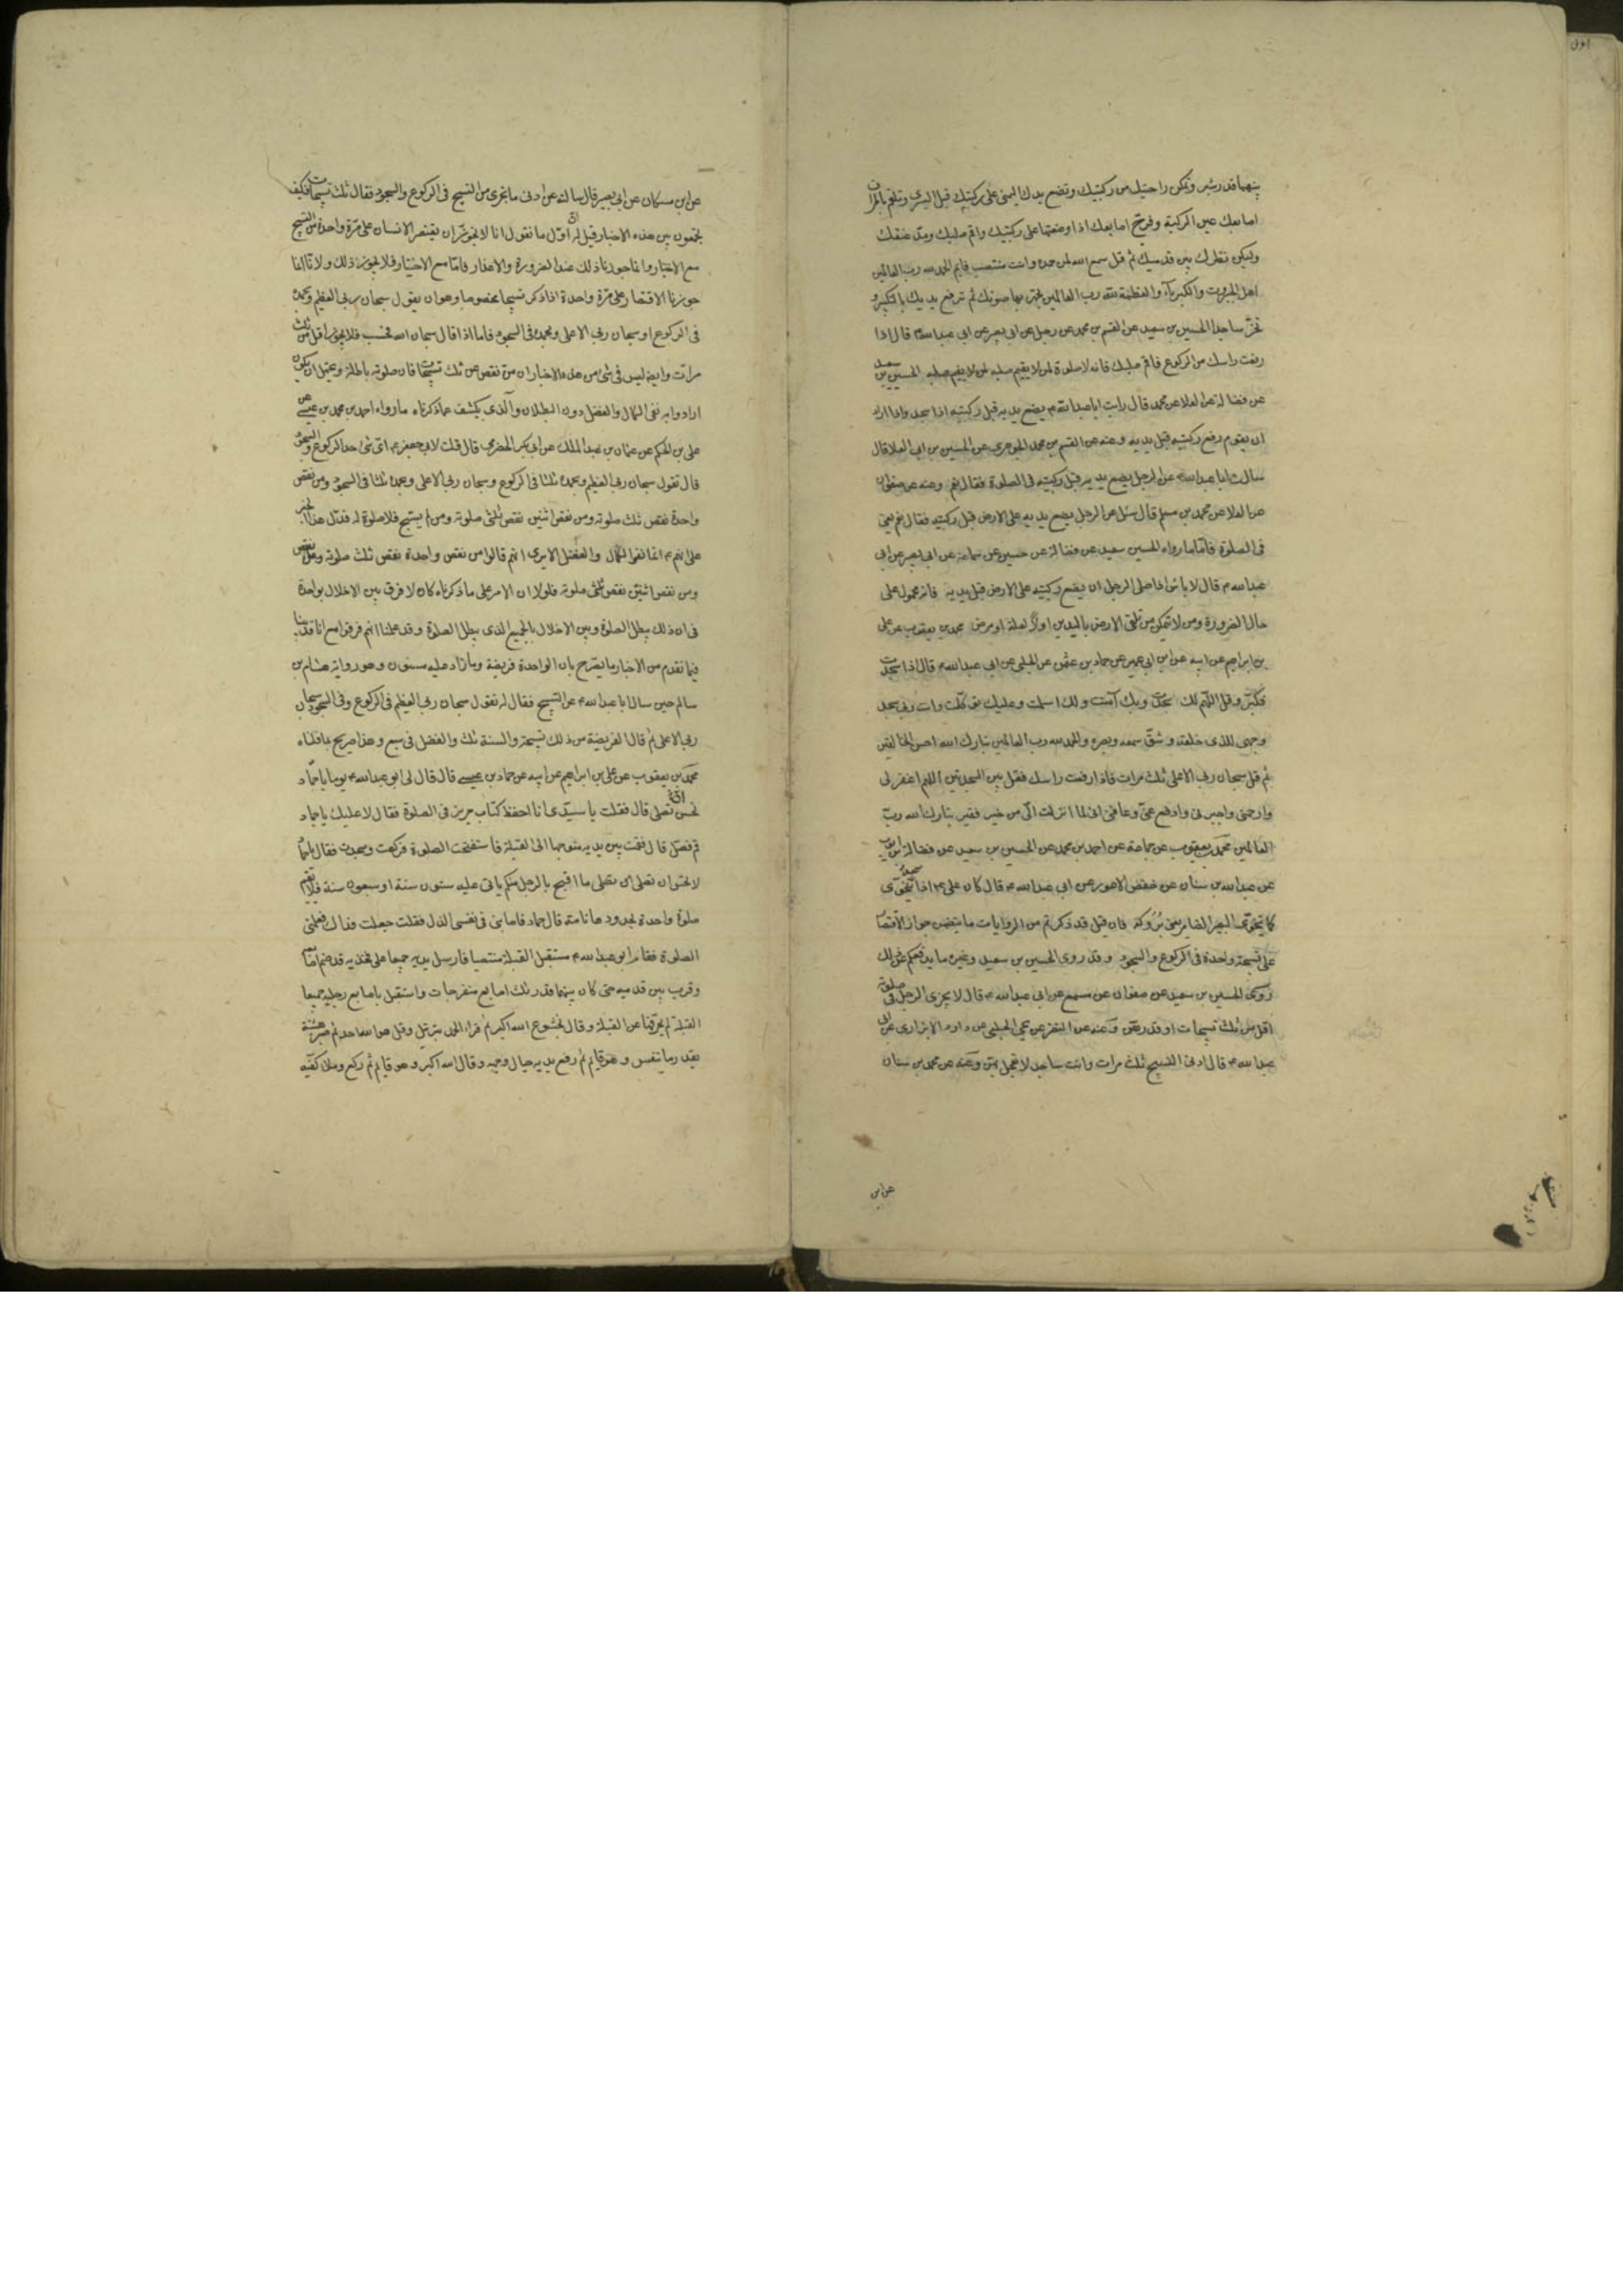 بينهما قدر شبر وتمكن راحتيك من ركبتيك وتضع يدك اليمنى على ركبتيك قبل اليسرى وتلقم باطراف
اصابعك عين الركبة وفرج اصابعك اذا وضعتها على ركبتيك واقم صلبك ومد عنقك
وليكن نظرك بين قدميك ثم قل سمع الله لمن حمده وانت منتصب قايم الحمد لله رب العالمين
اهل الجبروت والكبرياء والعظمة لله رب العالمين تجهر بها صوتك ثم ترفع يديك بالتكبير و
تخر ساجدا الحسين بن سعيد عن القسم بن محمد عن رجل عن ابي بصير عن ابي عبدالله ع قال اذا
رفعت راسك من الركوع فاقم صلبك فانه لا صلوة لمن لا يقيم صلبه الحسين بن سعيد
عن فضالة عن العلا عن محمد قال رايت ابا عبدالله ع يضع يديه قبل ركبتيه اذا سجد واذا اراد
ان يقوم رفع ركبتيه قبل يديه وعنه عن القسم بن محمد الجوهري عن الحسين بن ابي العلا قال
سالت ابا عبدالله ع عن الرجل يضع يديه قبل ركبتيه في الصلوة فقال نعم وعنه عن صفوان
عن العلا عن محمد بن مسلم قال سئل عن الرجل يضع يديه على الارض قبل ركبتيه فقال نعم يعني
في الصلوة فاما ما رواه الحسين سعيد عن فضالة عن حسين عن سماعة عن ابي بصير عن ابي
عبدالله ع قال لا باس اذا صلى الرجل ان يضع ركبتيه على الارض قبل يديه فانه محمول على
حال الضرورة ومن لا يتمكن من تلقى الارض باليدين اولا لعلة او مرض محمد بن يعقوب عن علي
بن ابراهيم عن ابيه عن ابن ابي عمير عن حماد بن عثمن عن الحلبي عن ابي عبدالله ع قال اذا سجدت
فكبر وقل اللهم لك سجدت وبك آمنت ولك اسلمت وعليك توكلت وانت ربي سجد
وجهي للذي خلقه وشق سمعه وبصره والحمد لله رب العالمين تبارك الله احسن الخالقين
ثم قل سبحان ربي الاعلى ثلث مرات فاذا رفعت راسك فقل بين السجدتين اللهم اغفر لي
وارحمني واجبرني وادفع عني وعافني اني لما انزلت الي من خير فقير تبارك الله رب
العالمين محمد بن يعقوب عن جماعة عن احمد بن محمد عن الحسين بن سعيد عن فضالة بن ايوب
عن عبدالله بن سنان عن حفص الاعور عن ابي عبدالله ع قال كان علي ع اذا سجد يتخوى
كما يتخوى البعير الضامر يعني بروكه فان قيل قد ذكرتم من الروايات ما يتضمن جواز الاقتصار
على تسبيحة واحدة في الركوع والسجود وقد روى الحسين بن سعيد وغيره ما يدفعكم عن ذلك
روى الحسين بن سعيد عن صفوان عن مسمع عن ابي عبدالله ع قال لا يجزي الرجل في صلوته
اقل من ثلث تسبيحات او قدرهن وعنه عن النضر عن يحيى الحلبي عن داود الابزاري عن ابي
عبدالله ع قال ادنى التسبيح ثلث مرات وانت ساجد لا تعجل بهن وعنه عن محمد بن سنان
عن ابن
عن ابن مسكان عن ابي بصير قال سالته عن ادنى ما يجزي من التسبيح في الركوع والسجود فقال ثلث تسبيحات فكيف
تجمعون بين هذه الاخبار قيل له ان اول ما نقول انا لا نجوز ان يقتصر الانسان على مرة واحدة من التسبيح
مع الاختيار وانما جوزنا ذلك عند الضرورة والاعذار فاما مع الاختيار فلا يجوز ذلك ولانا انما
جوزنا الاقتصار على مرة واحدة اذا ذكر تسبيحا مخصوصا وهو ان يقول سبحان ربي العظيم وبحمده
في الركوع او سبحان ربي الاعلى وبحمده في السجود فاما اذا قال سبحان الله فحسب فلا يجوز اقل من ثلث
مرات وايضا ليس في شئ من هذه الاخبار ان من نقص عن ثلث تسبيحات فان صلوته باطلة ويحتمل ان يكون
ارادوا به نفي الكمال والفضل دون البطلان والذي يكشف عما ذكرناه ما رواه احمد بن محمد بن عيسى عن
علي بن الحكم عن عثمان بن عبد الملك عن ابي بكر الحضرمي قال قلت لابي جعفر ع اي شئ حد الركوع والسجود
قال تقول سبحان ربي العظيم وبحمده ثلثا في الركوع وسبحان ربي الاعلى وبحمده ثلثا في السجود ومن نقص
واحدة نقص ثلث صلوته ومن نقص اثنين نقص ثلثي صلوته ومن لم يسبح فلا صلوة له فدل هذا الخبر
على انهم ع انما نفوا الكمال والفضل الا يرى انهم قالوا من نقص واحدة نقص ثلث صلوته
ومن نقص اثنين نقص ثلثي صلوته فلولا ان الامر على ما ذكرناه كان لا فرق بين الاخلال بواحدة
في ان ذلك يبطل الصلوة وبين الاخلال بالجميع الذي يبطل الصلوة وقد علمنا انهم فرقوا مع انا قد بينا
فيما تقدم من الاخبار ما يصرح بان الواحدة فريضة وما زاد عليه مسنون وهو رواية هشام بن
سالم حين سال ابا عبدالله ع عن التسبيح فقال له تقول سبحان ربي العظيم في الركوع وفي السجود سبحان
ربي الاعلى ثم قال الفريضة من ذلك تسبيحة والسنة ثلث والفضل في سبع وهذا صريح بما قلناه
محمد بن يعقوب عن علي بن ابراهيم عن ابيه عن حماد بن عيسى قال قال لي ابو عبدالله ع يوما يا حماد
تحسن ان تصلي قال فقلت يا سيدي انا احفظ كتاب حريز في الصلوة فقال لا عليك يا حماد
قم فصل قال فقمت بين يديه متوجها الى القبلة فاستفتحت الصلوة فركعت وسجدت فقال يا حماد
لا تحسن ان تصلي ما اقبح بالرجل منكم ياتي عليه ستون سنة او سبعون سنة فلا يقيم
صلوة واحدة بحدودها تامة قال حماد فاصابني في نفسي الذل فقلت جعلت فداك فعلمني
الصلوة فقام ابو عبدالله ع مستقبل القبلة منتصبا فارسل يديه جميعا على فخذيه قد ضم اصابعه
وقرب بين قدميه حتى كان بينهما قدر ثلث اصابع منفرجات واستقبل باصابع رجليه جميعا
القبلة لم يحرفها عن القبلة وقال بخشوع الله اكبر ثم قراء الحمد بترتيل وقل هو الله احد ثم صبر هنيئة
بقدر ما يتنفس وهو قايم ثم رفع يديه حيال وجهه وقال الله اكبر وهو قايم ثم ركع وملأ كفيه